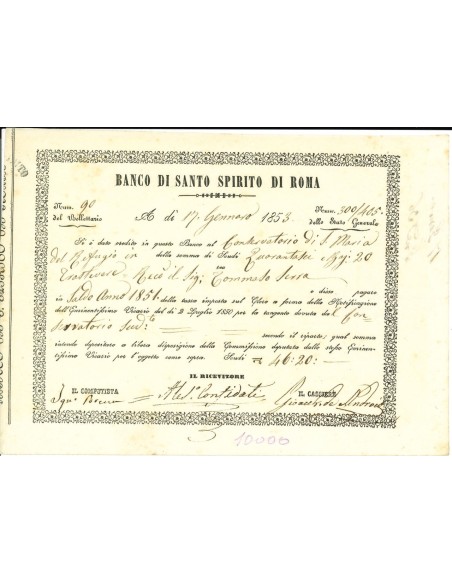 BANCO DI SANTO SPIRITO DI ROMA
Num. 90 del Bollettario
A di 17 Gennaro 1853
Num. 300/405 dello Stato Generale
Si è dato credito in questo Banco al Conservatorio di S. Maria
del Rifugio in della somma di Scudi Quarantasei Baj: 20
Trastevere Recò il Sig: Tommaso Serra e disse pagare
in Saldo Anno 1851 della tassa imposta sul Clero a forma della Notificazione
dell'Eminentissimo Vicario del di 2 Luglio 1850 per la tangente dovuta dal Con
servatorio Sud:
secondo il riparto, qual somma
intende depositare a libera disposizione della Commissione deputata dallo stesso Eminen-
tissimo Vicario per l'oggetto come sopra. Scudi 46:20:
IL RICEVITORE
IL COMPUTISTA
IL CASSIERE
10000